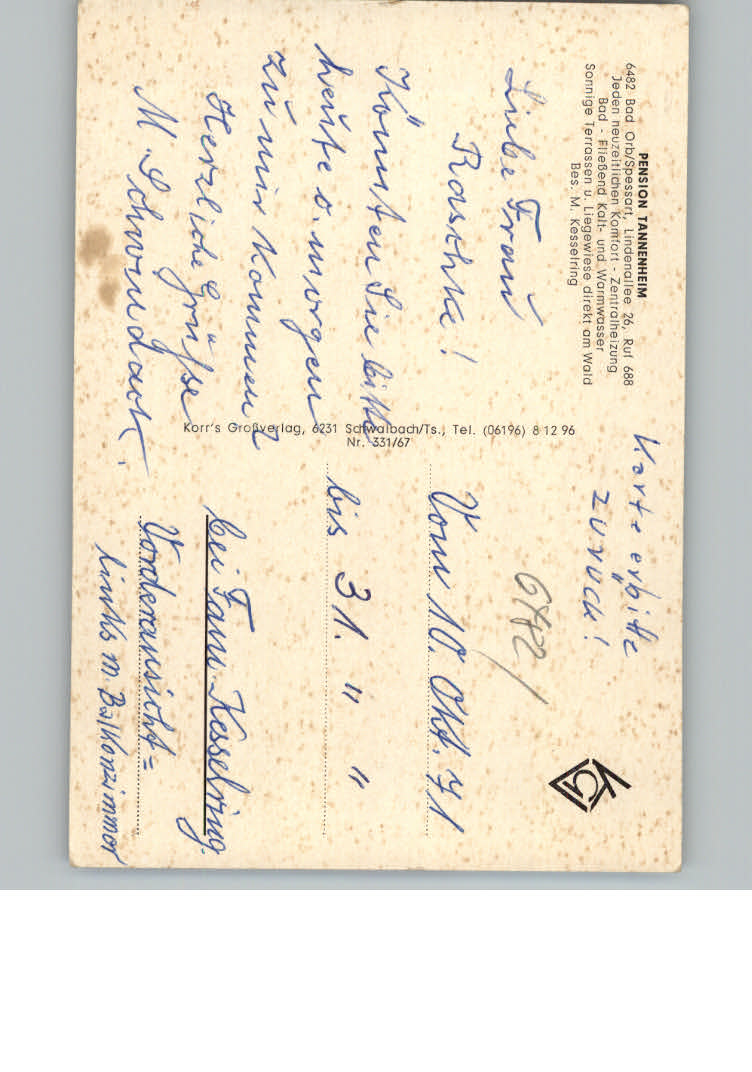 PENSION TANNENHEIM
6482 Bad Orb/Spessart, Lindenallee 26, Ruf 688
Jeden neuzeitlichen Komfort - Zentralheizung
Bad - Fließend Kalt- und Warmwasser
Sonnige Terrassen u. Liegewiese direkt am Wald
Bes. M. Kesselring
Liebe Frau
Raschke!
Könnten Sie bitte
heute o. morgen
zu mir kommen?
Herzliche Grüße
M. Schwindack.
Korr's Großverlag, 6231 Schwalbach/Ts., Tel. (06196) 8 12 96
Nr. 331/67
Karte erbitte
zurück!
6482
Vom 10. Okt. 71
bis 31. " "
bei Fam. Kesselring
Vorderansicht =
links m Balkonzimmer